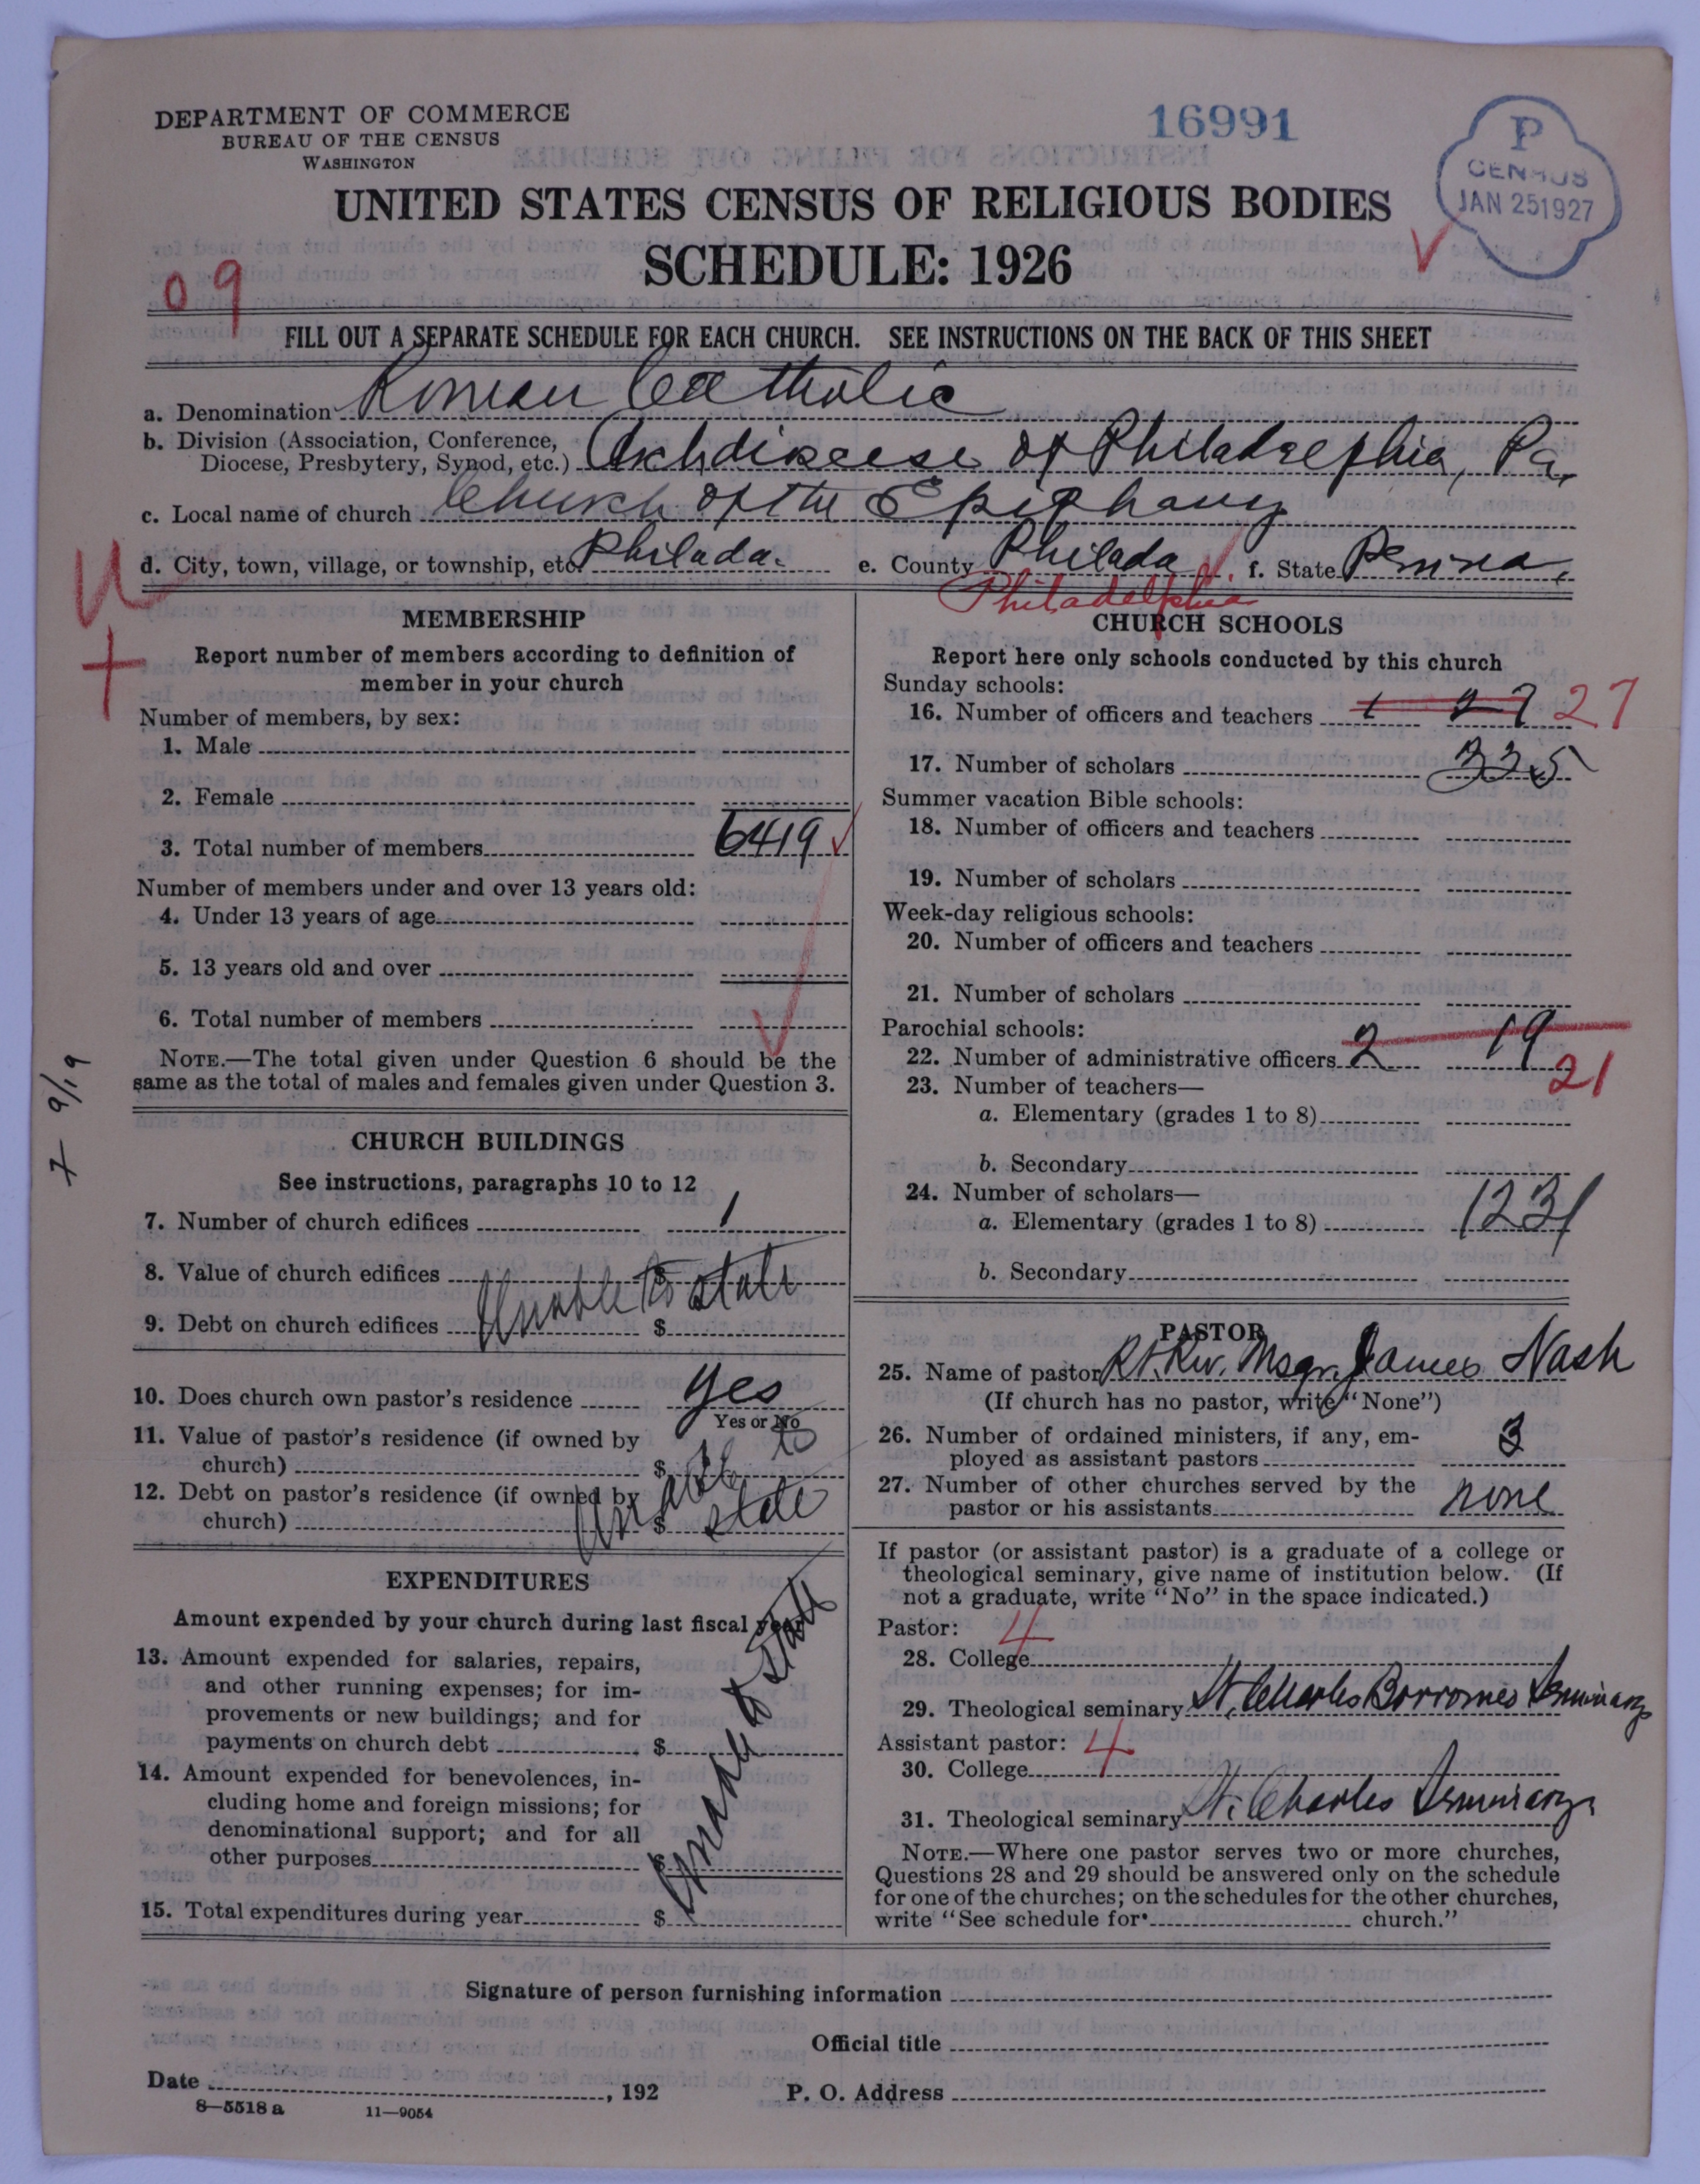 DEPARTMENT OF COMMERCE
BUREAU OF THE CENSUS
WASHINGTON
16991
P
CENSUS
JAN 25 1927
UNITED STATES CENSUS OF RELIGIOUS BODIES
SCHEDULE: 1926
09
FILL OUT A SEPARATE SCHEDULE FOR EACH CHURCH. SEE INSTRUCTIONS ON THE BACK OF THIS SHEET
a. Denomination Roman Catholic
b. Division (Association, Conference, Diocese, Presbytery, Synod, etc.) Archdiocese of Philadelphia, Pa.
c. Local name of church Church of the Epiphany
d. City, town, village, or township, etc. Philada. e. County Philada f. State Penna.
Philadelphia
MEMBERSHIP
Report number of members according to definition of
member in your church
Number of members, by sex:
1. Male
2. Female
3. Total number of members 6419
Number of members under and over 13 years old:
4. Under 13 years of age
5. 13 years old and over
6. Total number of members
NOTE.—The total given under Question 6 should be the
same as the total of males and females given under Question 3.
7 9/19
CHURCH BUILDINGS
See instructions, paragraphs 10 to 12
7. Number of church edifices 1
8. Value of church edifices $
Unable to state
9. Debt on church edifices $
10. Does church own pastor's residence yes
Yes or No
11. Value of pastor's residence (if owned by
church) $
Unable to state
12. Debt on pastor's residence (if owned by
church) $
EXPENDITURES
Amount expended by your church during last fiscal year
13. Amount expended for salaries, repairs,
and other running expenses; for im-
provements or new buildings; and for
payments on church debt $
Unable to state
14. Amount expended for benevolences, in-
cluding home and foreign missions; for
denominational support; and for all
other purposes $
15. Total expenditures during year $
CHURCH SCHOOLS
Report here only schools conducted by this church
Sunday schools:
16. Number of officers and teachers 27 27
17. Number of scholars 335
Summer vacation Bible schools:
18. Number of officers and teachers
19. Number of scholars
Week-day religious schools:
20. Number of officers and teachers
21. Number of scholars
Parochial schools:
22. Number of administrative officers 2 19
21
23. Number of teachers—
a. Elementary (grades 1 to 8)
b. Secondary
24. Number of scholars—
a. Elementary (grades 1 to 8) 1231
b. Secondary
PASTOR
25. Name of pastor Rt. Rev. Msgr. James Nash
(If church has no pastor, write "None")
26. Number of ordained ministers, if any, em-
ployed as assistant pastors 3
27. Number of other churches served by the
pastor or his assistants none
If pastor (or assistant pastor) is a graduate of a college or
theological seminary, give name of institution below. (If
not a graduate, write "No" in the space indicated.)
Pastor: 4
28. College
29. Theological seminary St. Charles Borromeo Seminary
Assistant pastor: 4
30. College
31. Theological seminary St. Charles Seminary
NOTE.—Where one pastor serves two or more churches,
Questions 28 and 29 should be answered only on the schedule
for one of the churches; on the schedules for the other churches,
write "See schedule for church."
Signature of person furnishing information
Official title
Date , 192 P. O. Address
8—5518 a 11—9054